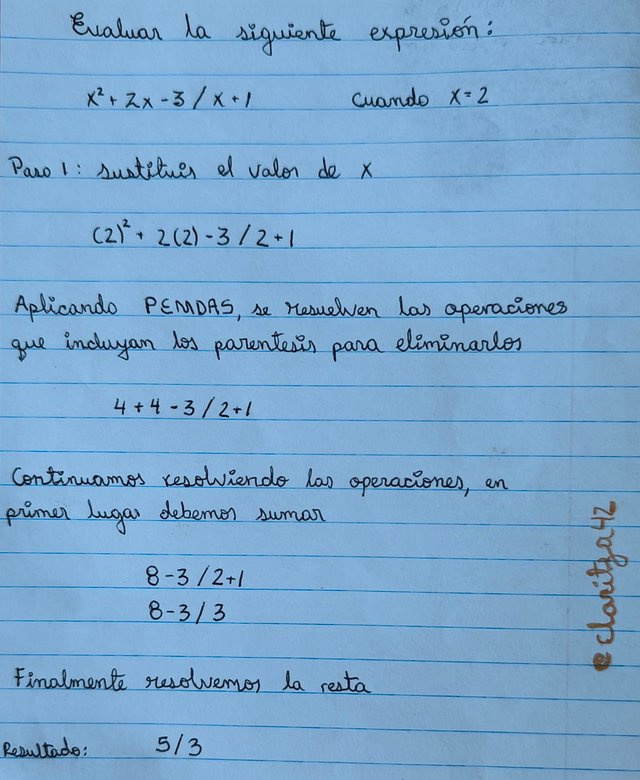 Evaluar la siguiente expresión:
x² + 2x - 3 / x + 1 cuando x = 2
Paso 1: sustituir el valor de x
(2)² + 2(2) - 3 / 2 + 1
Aplicando PEMDAS, se resuelven las operaciones
que incluyan los parentesis para eliminarlos
4 + 4 - 3 / 2 + 1
Continuamos resolviendo las operaciones, en
primer lugar debemos sumar
8 - 3 / 2 + 1
8 - 3 / 3
Finalmente resolvemos la resta
Resultado: 5/3
@claritza42